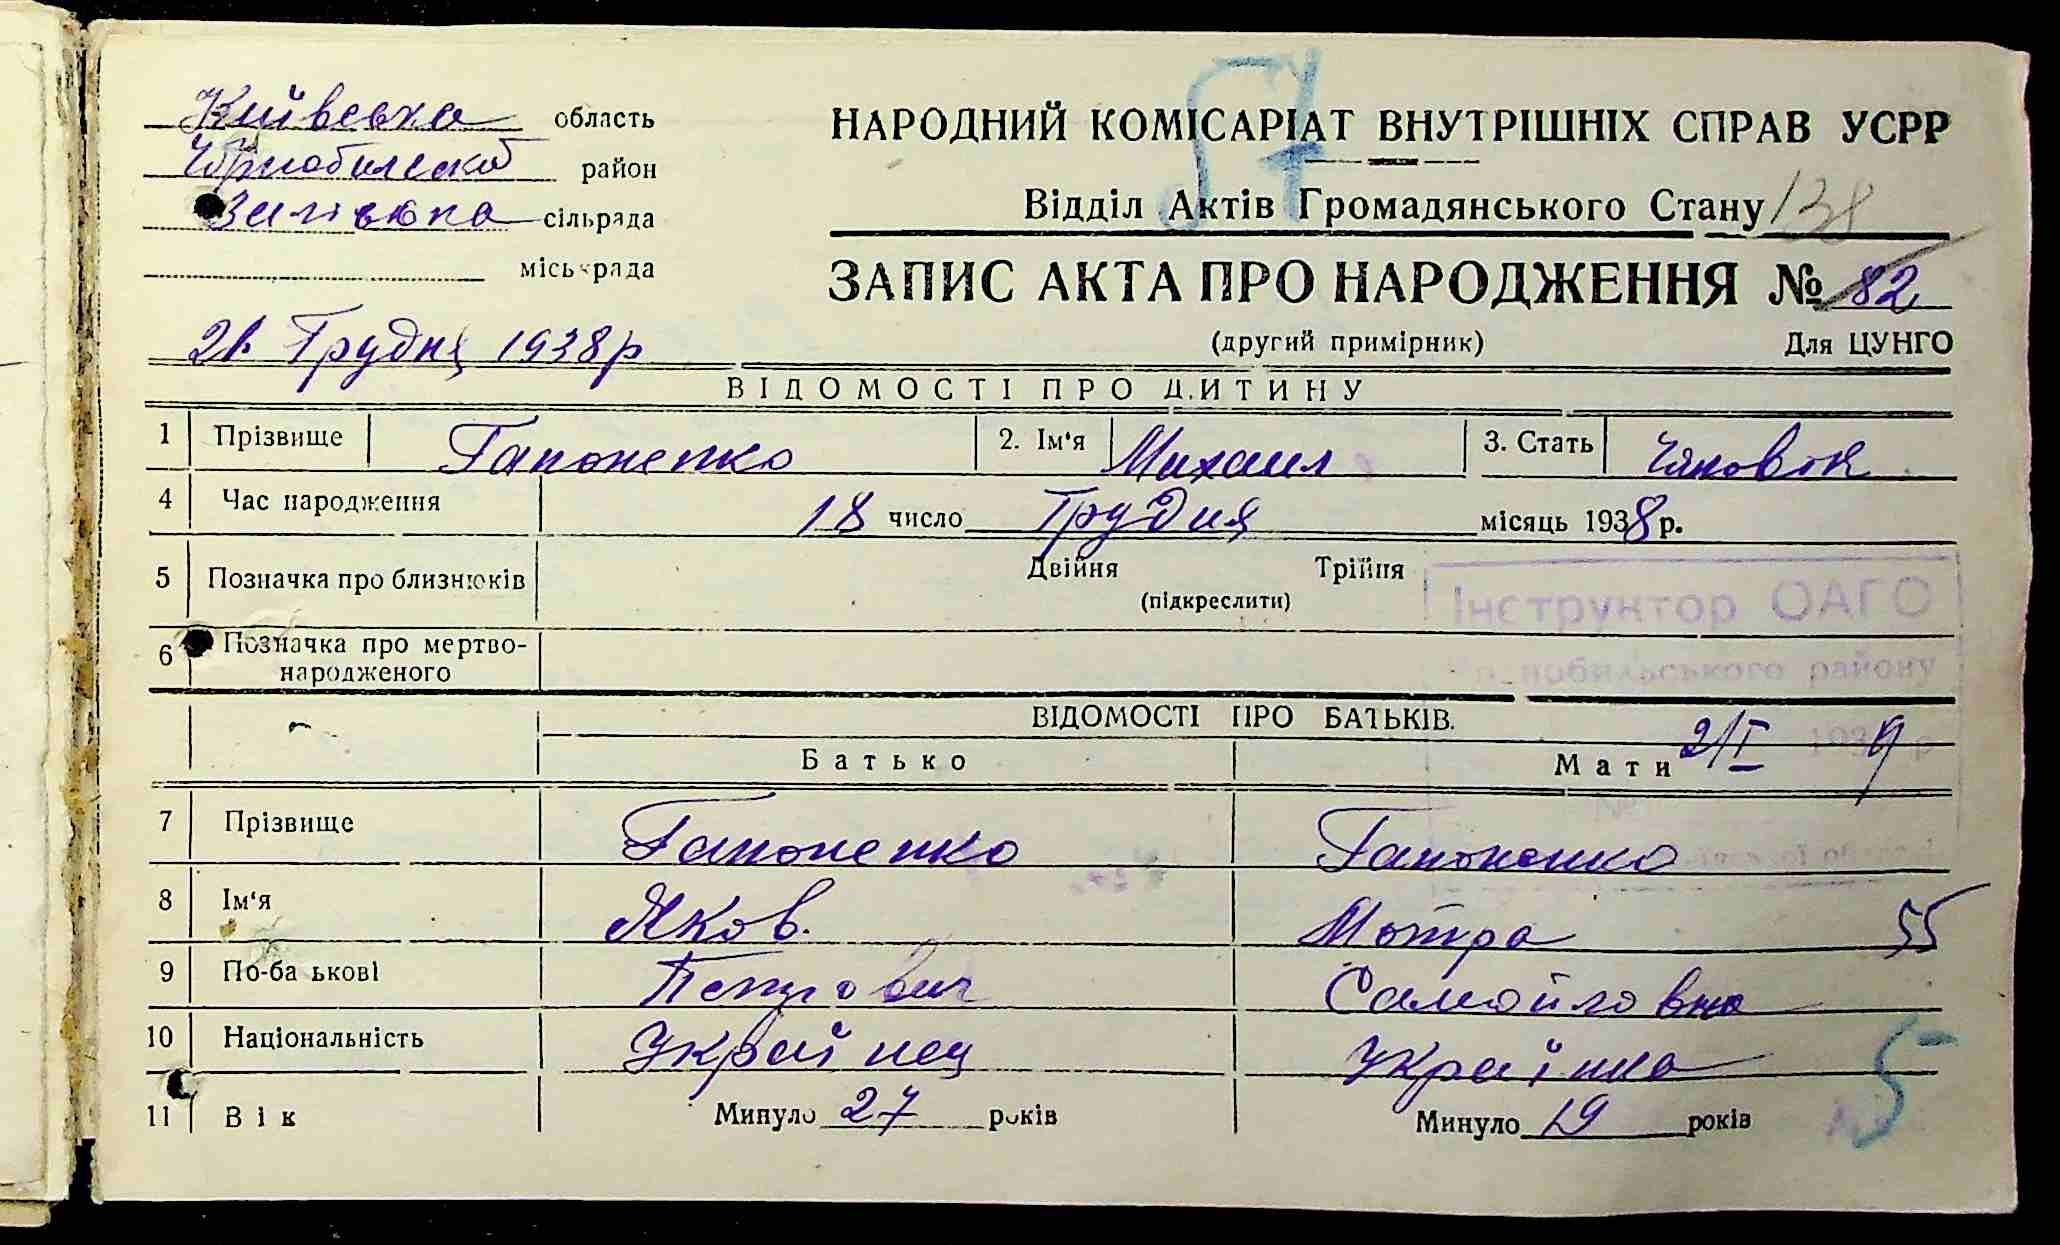 Київська область
Чорнобильской район
Залісьна сільрада
міськрада
57
НАРОДНИЙ КОМІСАРІАТ ВНУТРІШНІХ СПРАВ УСРР
Відділ Актів Громадянського Стану 138
ЗАПИС АКТА ПРО НАРОДЖЕННЯ № 82
(другий примірник) Для ЦУНГО
21 Грудня 1938 р
ВІДОМОСТІ ПРО ДИТИНУ
1 Прізвище Гапоненко 2. Ім'я Михаил 3. Стать
4 Час народження 18 число Грудня місяць 1938 р.
5 Позначка про близнюків Двійня Трійня
(підкреслити)
Інструктор ОАГО
6 Позначка про мертво-
народженого
района району
ВІДОМОСТІ ПРО БАТЬКІВ.
2/I 1939 р
Батько Мати
7 Прізвище Гапоненко Гапоненко
8 Ім'я Яков. Мотра 55
9 По-ба ькові Петрович Самойловна
10 Національність Українец Українка
5
11 Вік Минуло 27 років Минуло 19 років